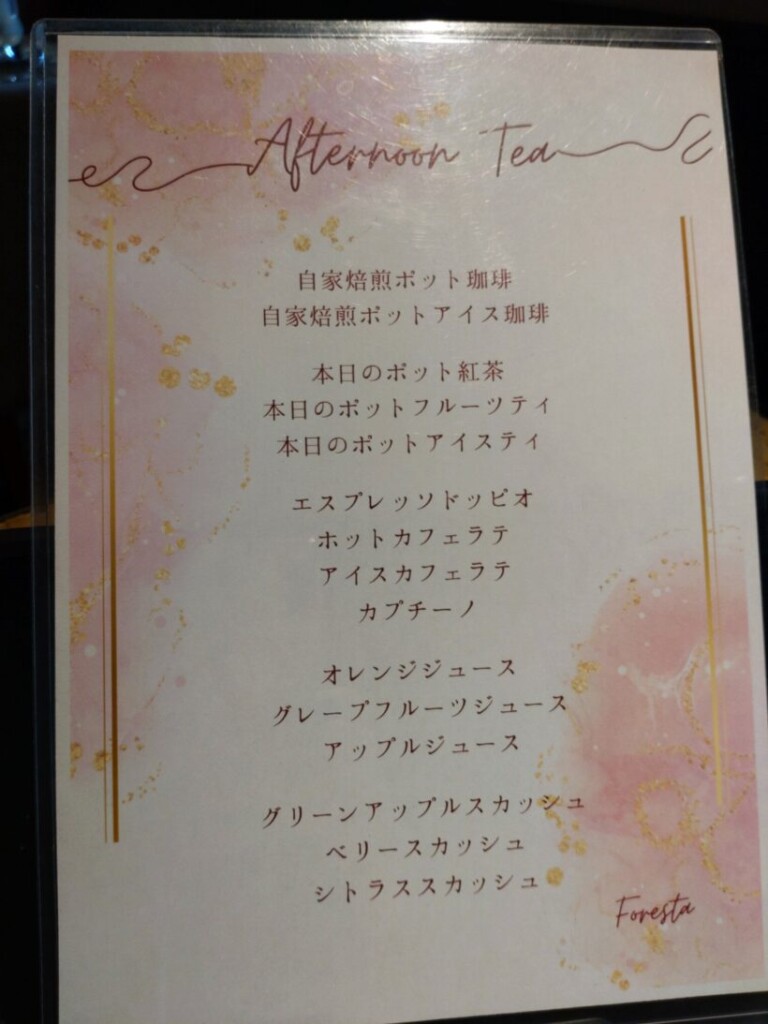 Afternoon Tea
自家焙煎ポット珈琲
自家焙煎ポットアイス珈琲
本日のポット紅茶
本日のポットフルーツティ
本日のポットアイスティ
エスプレッソドッピオ
ホットカフェラテ
アイスカフェラテ
カプチーノ
オレンジジュース
グレープフルーツジュース
アップルジュース
グリーンアップルスカッシュ
ベリースカッシュ
シトラススカッシュ
Foresta